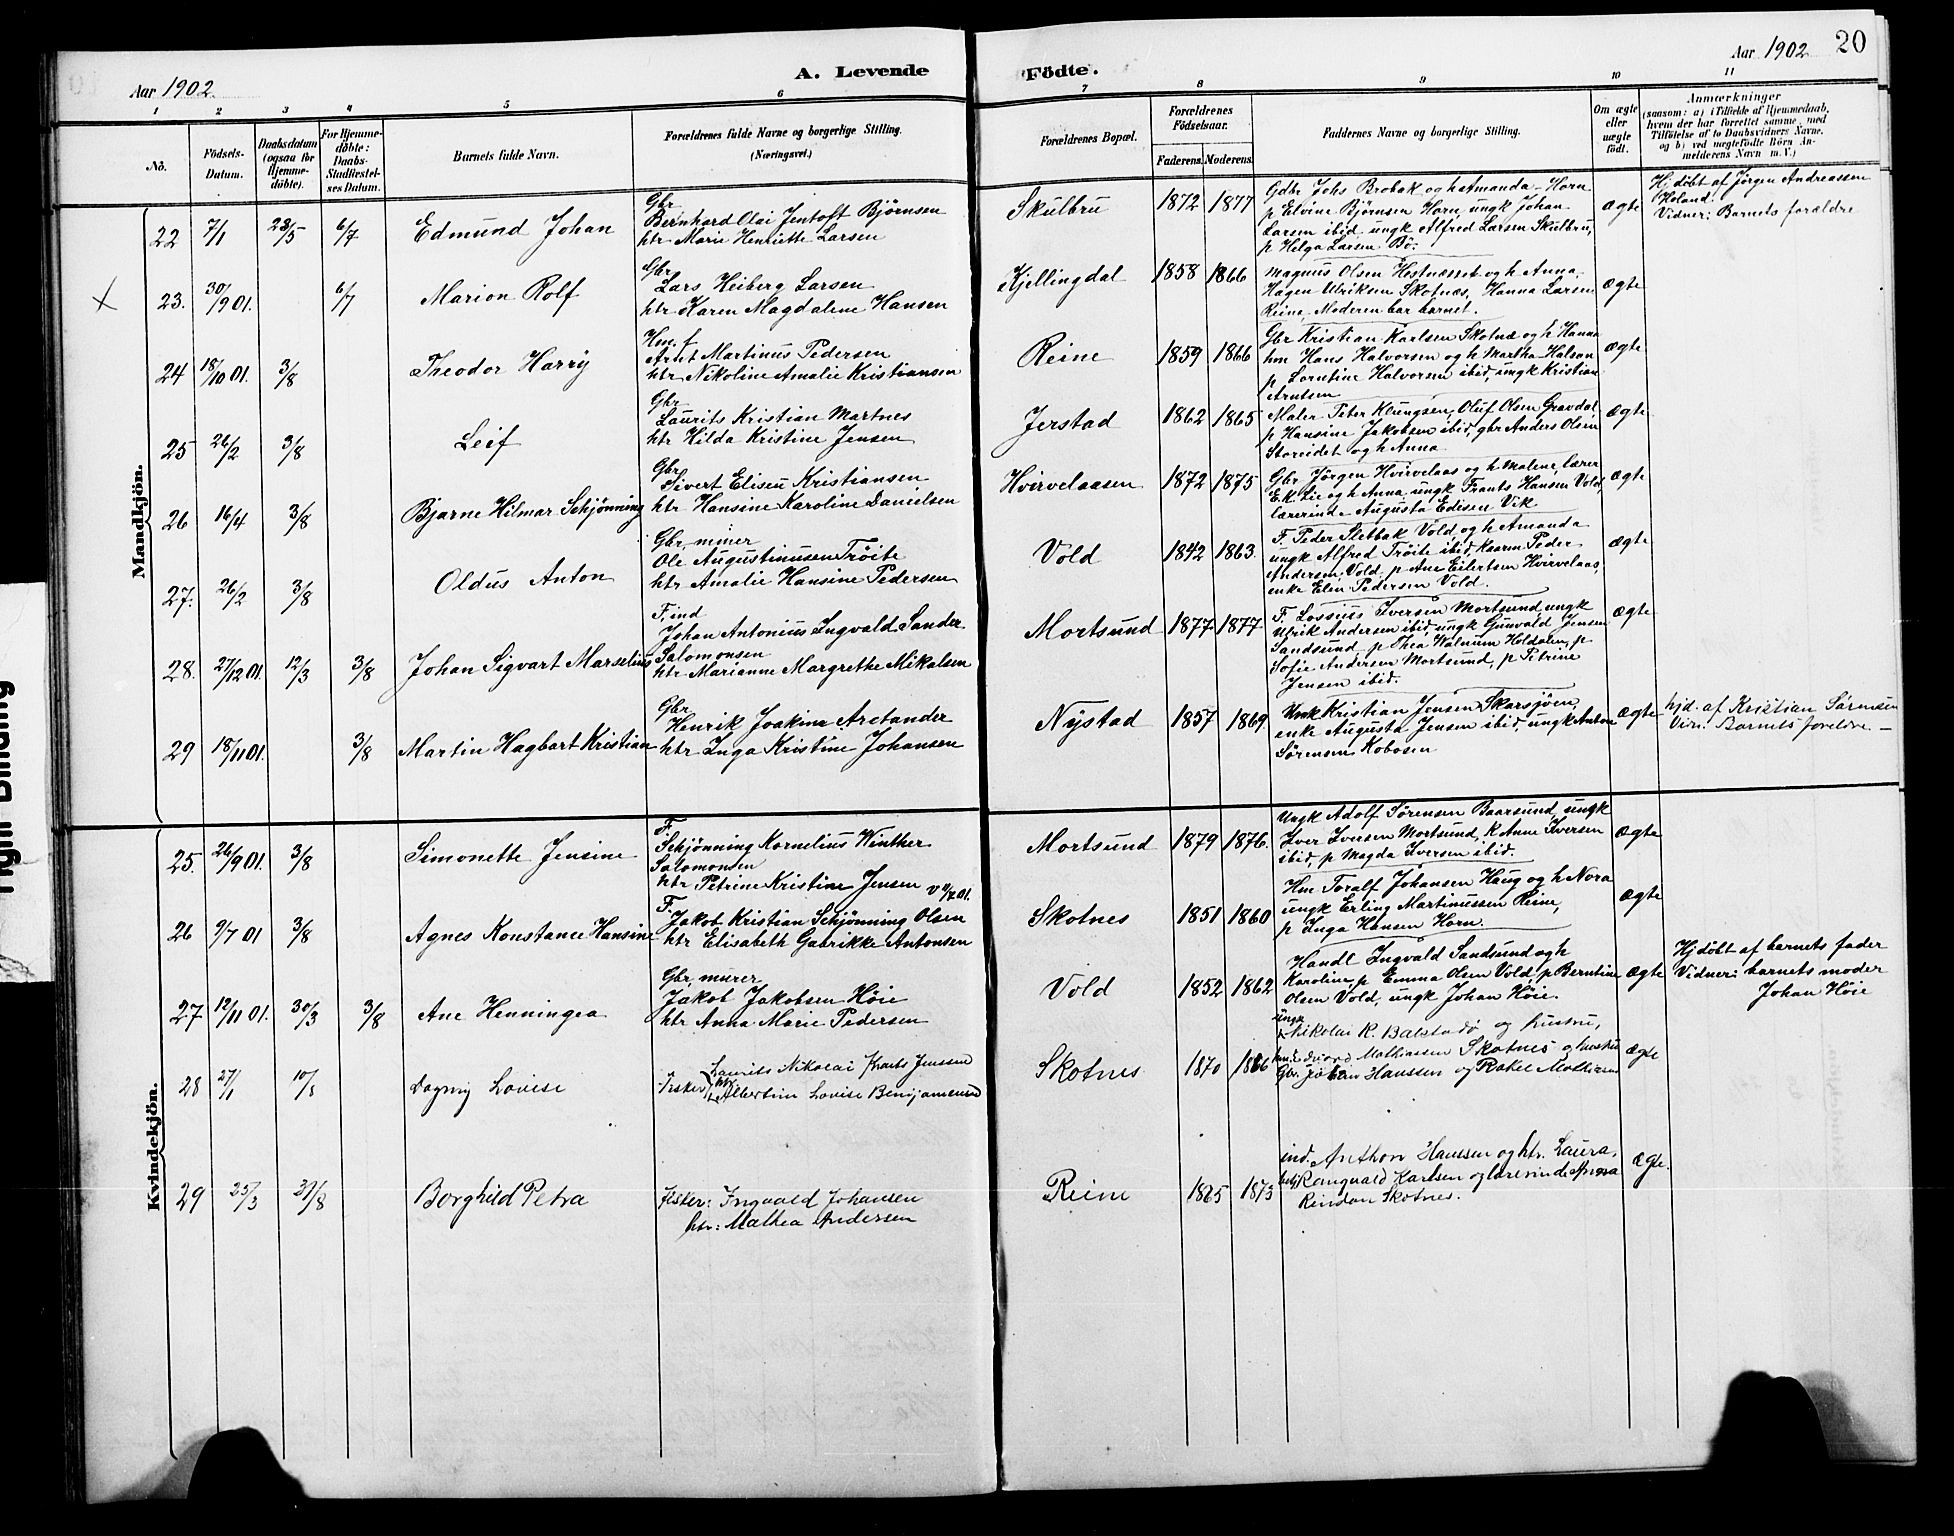 Aar 1902.
A. Levende
Födte.
Aar 1902
20
1
2
3
4
5
6
7
8
9
10
11
No.
Födsels-
Datum.
Daabsdatum
(ogsaa for
Hjemme-
döbte).
For Hjemme-
döbte:
Daabs-
Stadfæstel-
ses Datum.
Barnets fulde Navn.
Forældrenes fulde Navne og borgerlige Stilling.
(Næringsvei.)
Forældrenes Bopæl.
Forældrenes
Födselsaar.
Faderens.
Moderens.
Faddernes Navne og borgerlige Stilling.
Om ægte
eller
uægte
födt.
Anmærkninger
(saasom: a) i Tilfælde af Hjemmedaab,
hvem der har forrettet samme, med
Tilföielse af to Daabsvidners Navne,
og b) ved uægtefödte Börn An-
melderens Navn m. V.)
Mandkjön.
22 7/1 23/5 6/7 Edmund Johan
Gbr
Bernhard Olai Jentoft Bjørnsen
htr Marie Henriette Larsen
Skulbru 1872 1877
Gdbr Johs Brobak og h Amanda - Horn
p Elvine Bjørnsen Horn, ungk Johan
Larsen ibid ungk Alfred Larsen Skulbru,
p Helga Larsen Bø:
ægte
Hjdøbt af Jörgen Andreassen
Holand.
Vidner: Barnets forældre
23. 30/9 01. 6/7 Marion Rolf
Gbr
Lars Heiberg Larsen
htr Karen Magdalene Hansen
Kjellingdal 1858 1866
Magnus Olsen Hestnæsset og h Anna,
Hagen Ulriksen Skotnæs, Hanna Larsen
Reine, Moderen bar barnet.
ægte
24 18/10 01. 3/8 Theodor Harry
Hm. f
Arnt Martinus Pedersen
htr Nikoline Amalie Kristiansen
Reine 1859 1866
Gbr Kristian Karlsen Skotnæ og h Hanna
hm Hans Halvorsen og h Martha Halsan
p Lorntine Halvorsen ibid, ungk Kristian
Arntsen
ægte
25 26/2 3/8 Leif
Gbr
Laurits Kristian Martnes
htr Hilda Kristine Jensen
Jerstad 1862 1865
Maler Peter Klungsen, Oluf Olsen Gravdal,
p Hansine Jakobsen ibid, gbr Anders Olsen
Storeidet og h Anna
ægte
26 16/4 3/8 Bjarne Hilmar Schjønning
Gbr
Sivert Eliseu Kristiansen
htr Hansine Karoline Danielsen
Hvirvelaasen 1872 1875
Gbr Jörgen Hvirvelaas og h Malene, lærer
E.K. Lie og h Anna, ungk Frants Hansen Vold,
lærerinde Augusta Edisen Vik
ægte
27. 26/2 3/8 Oldus Anton
Gbr, murer
Ole Augustinusen Trøite
htr Amalie Hansine Pedersen
Vold 1842 1863.
F. Peder Sletbak Vold og h Amanda
ungk Alfred Trøite ibid, Kaaren Peder
Andersen, Vold p Ane Eilertsen Hvirvelaas,
enke Elen Pedersen Vold.
ægte
28. 27/12 01. 12/3 3/8 Johan Sigvart Marselius
F, ind
Johan Antonius Ingvald Sander
Salomonsen
htr Marianne Margrethe Mikalsen
Mortsund 1877 1877
F. Lossius Iversen Mortsund, ungk
Ulrik Andersen ibid, ungk Gunvald Jensen
Sandsund p Thea Walnum Holdøren, p
Sofie Andersen Mortsund, p Petrine
Jensen ibid.
ægte
29 18/11 01. 3/8 Martin Hagbart Kristian
Gbr
Henrik Joakim Arctander
htr Inga Kristine Johansen
Nystad 1857 1869.
Umk Kristian Jensen Skarsjøen,
enke Augusta Jensen ibid, ungk Anton
Sörensen Kobosen
ægte
hjd. af Kristian Sörensen
Vidn: Barnets foreldre -
Kvindekjön.
25. 26/9 01. 3/8 Simonette Jensine
F.
Schjønning Kornelius Winther
Salomonsen
htr Petrine Kristine Jensen
Mortsund 1879 1876.
Ungk Adolf Sørensen Baarsund, ungk
Iver Iversen Mortsund, K Anne Iversen
ibid, p Magda Iversen ibid.
ægte
26 9/7 01 3/8 Agnes Konstance Hansine
F.
Jakob Kristian Schjønning Olsen
htr Elisabeth Gabrikke Antonsen
Skotnes 1851 1860
Hm Toralf Johansen Haug og h Nora
ungk Erling Martinussen Reine,
p Inga Hansen Horn.
ægte
27 12/11 01. 30/3 3/8 Ane Henningea
Gbr, murer
Jakob Jakobsen Høie
htr Anna Marie Pedersen
Vold 1852 1862
Handl Ingvald Sandsund og h
Karoline, p Emma Olsen Vold, p Berntine
Olsen Vold, ungk Johan Høie.
ægte
Hjdøbt af barnets fader
Vidner: barnets moder
Johan Høie
28 27/1 10/8 Dagny Lovise
Fisker Laurits Nikolai Jenssen
htr Albertine Lovise Benjaminsen
Skotnes 1870 1866
ungk
Nikolai K. Balstadø og hustru,
Edvard Mathiassen Skotnes og hustru
Gbr. Johan Hanssen og Rakel Mathisen
ægte
29 25/3 31/8 Borghild Petra
Fisker: Ingvald Johansen
htr: Mathea Andersen
Reine 1865 1873
ind. Anthon Hanssen og htr. Laura,
Rangvald Karlsen og lærerinde Anna
Rindan Skotnes.
ægte.
Tight Binding